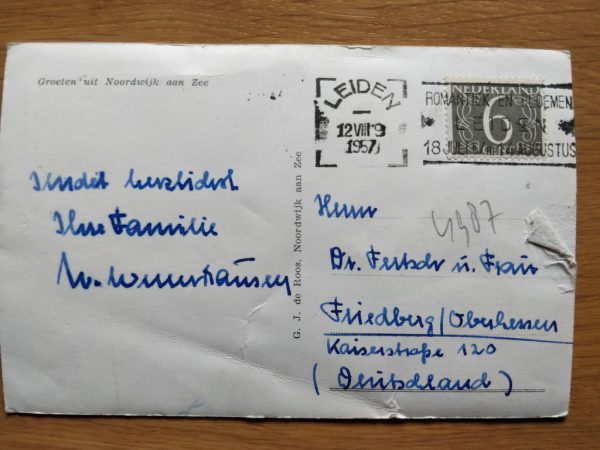 Groeten uit Noordwijk aan Zee
LEIDEN
12 VIII 9
1957
NEDERLAND
6
ROMANTIEK EN BLOEMEN
LEIDEN
18 JULI AUGUSTUS
G. J. de Roos, Noordwijk aan Zee
herzlichst
Ihre Familie
Herrn
Dr. u. Frau
Friedberg/Oberhessen
Kaiserstraße 120
(Deutschland)
4987